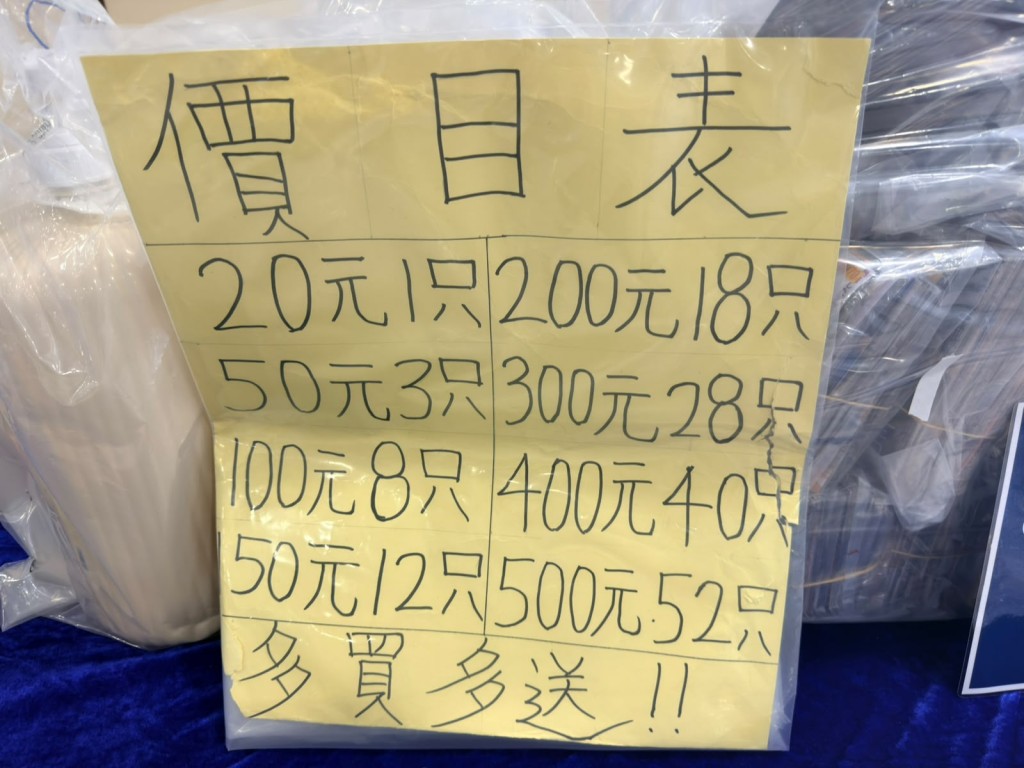 價目表
20元1只 200元18只
50元3只 300元28只
100元8只 400元40只
150元12只 500元.52只
多買多送!!